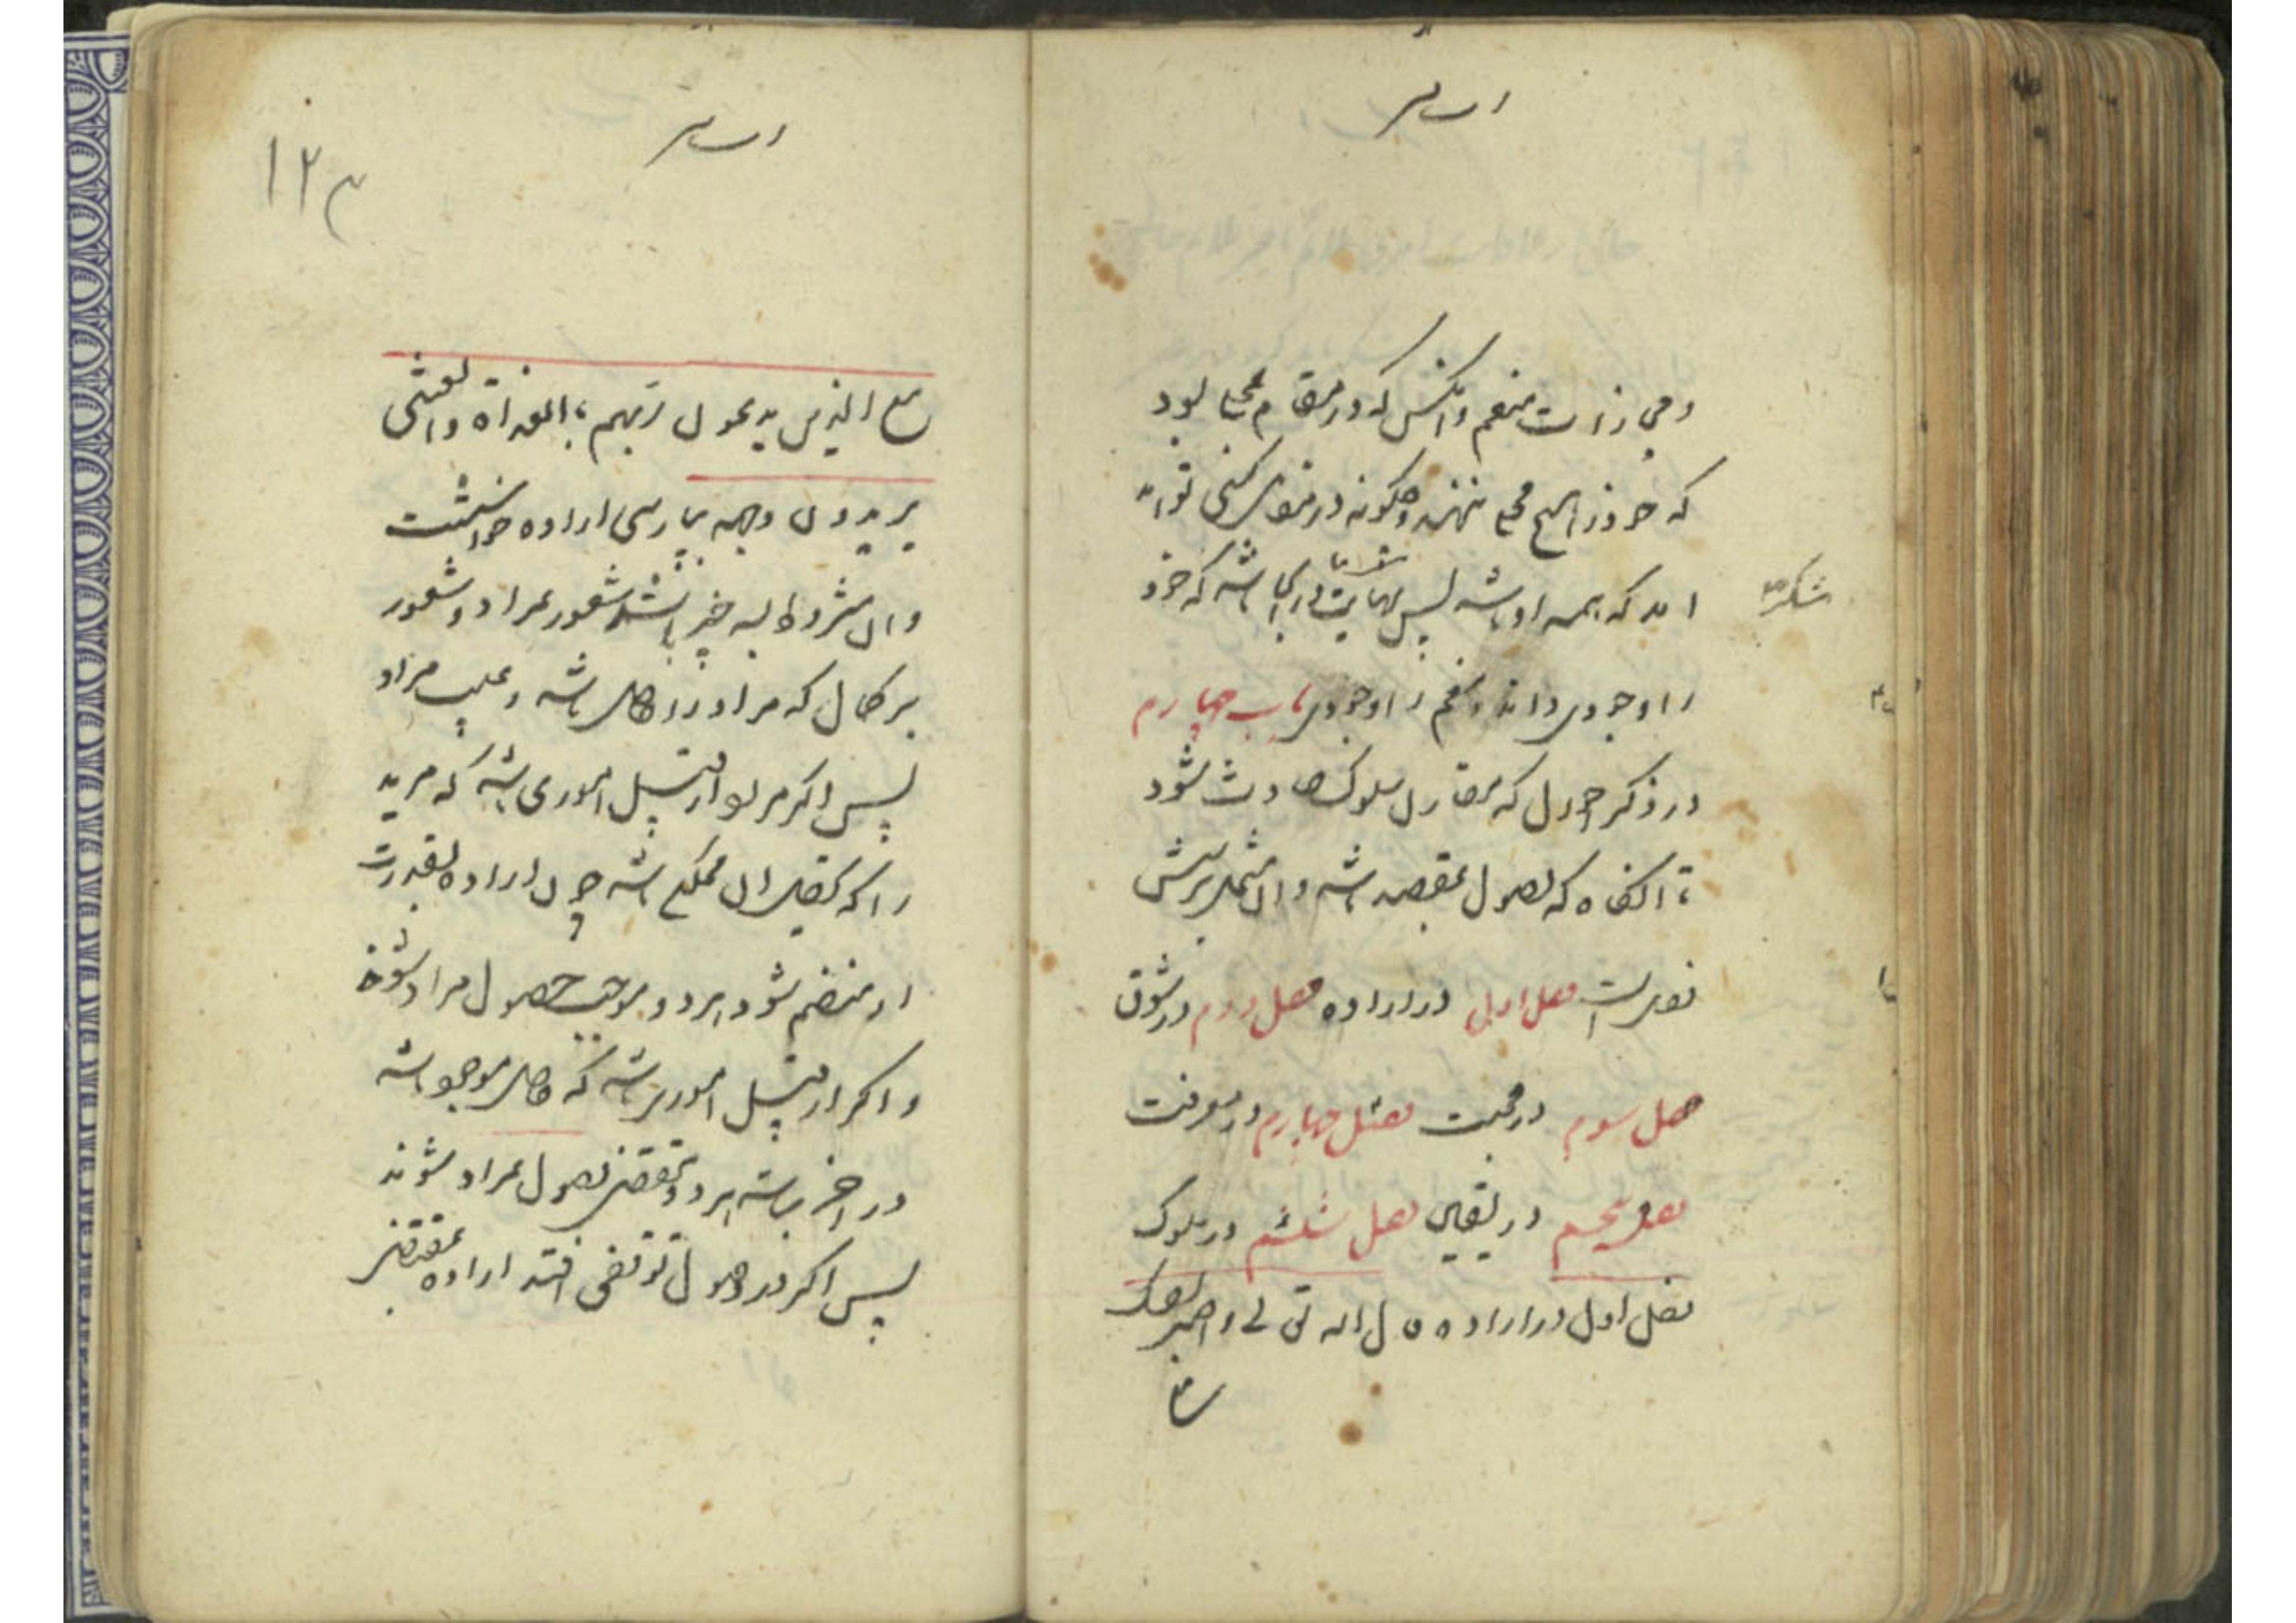 و مجازات منعم و آنکس که در مقام محبا بود
که خود را هیچ محبا ننهند و چگونه در مقابل کسی تواند
آمد که همه او باشد پس نهایت شکر آن باشد که خود
شکر
را وجودی داند و منعم را وجودی باب چهارم
در ذکر احوال که مقارن سلوک حادث شود
تا آنگاه که وصول بمقصد باشد و آن مشتمل بر شش
فصل است فصل اول در اراده فصل دوم در شوق
فصل سوم در محبت فصل چهارم در معرفت
فصل پنجم در یقین فصل ششم در سلوک
فصل اول در اراده قال الله تعالی واصبر نفسک
مع
۱۲۳
مع الذین یدعون ربهم بالغداة والعشی
یریدون وجهه بپارسی اراده خواستنست
و آن مشروط بسه چیز باشد شعور بمراد و شعور
بر کمال که مراد را حاصل باشد و غیبت مراد
پس اگر مراد از قبیل اموری باشد که مرید
را که تحصیل آن ممکن باشد چون اراده بقدرت
او منضم شود هر دو موجب حصول مراد شوند
و اگر از قبیل اموری باشد که حاصل و موجود باشد
در آخر باشد هر دو مقتضی وصول بمراد شوند
پس اگر در وصول توقفی افتد اراده مقتضی